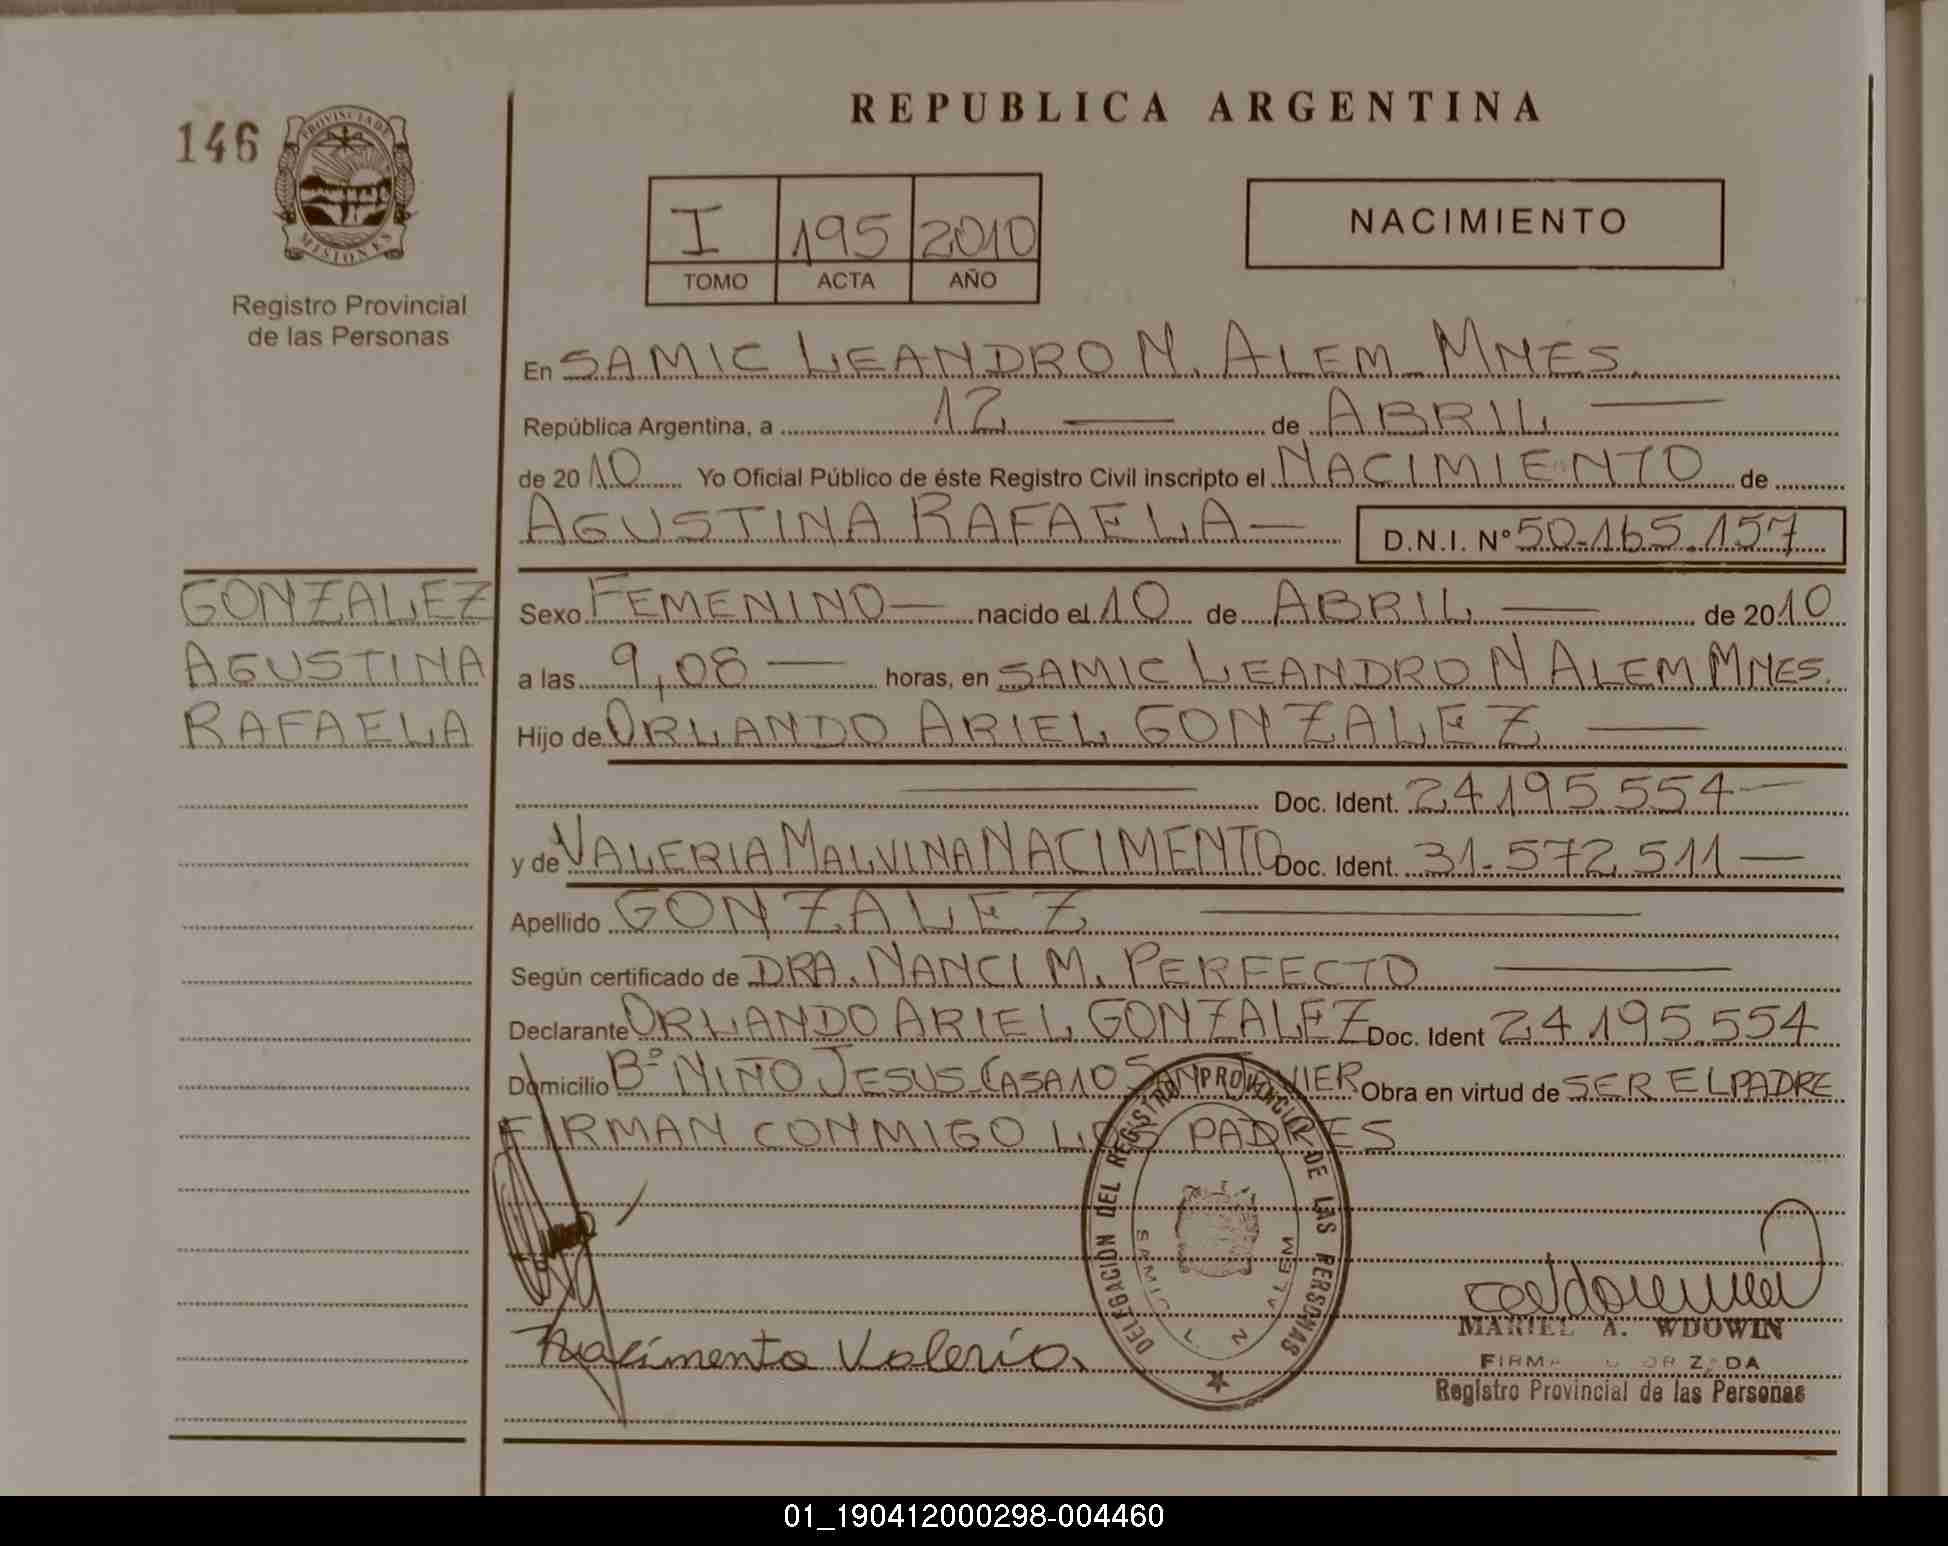 146
PROVINCIA DE
MISIONES
Registro Provincial
de las Personas
REPUBLICA ARGENTINA
I 195 2010
TOMO ACTA AÑO
NACIMIENTO
En SAMIC LEANDRO N. ALEM - MNES.
República Argentina, a 12 — de ABRIL —
de 2010 Yo Oficial Público de éste Registro Civil inscripto el NACIMIENTO de
AGUSTINA RAFAELA — D.N.I. Nº 50.165.157
GONZALEZ
AGUSTINA
RAFAELA
Sexo FEMENINO — nacido el 10 de ABRIL — de 2010
a las 9,08 — horas, en SAMIC LEANDRO N ALEM MNES.
Hijo de ORLANDO ARIEL GONZALEZ —
— Doc. Ident. 24.195.554 —
y de VALERIA MALVINA NACIMENTO Doc. Ident. 31.572.511 —
Apellido GONZALEZ —
Según certificado de DRA. NANCI M. PERFECTO —
Declarante ORLANDO ARIEL GONZALEZ Doc. Ident 24.195.554
Domicilio Bº NIÑO JESUS - CASA 10 Obra en virtud de SER EL PADRE
FIRMAN CONMIGO LOS PADRES
DELEGACION DEL REGISTRO PROVINCIAL DE LAS PERSONAS
SAMIC L. N. ALEM
Nacimento Valeria.
MARIEL A. WDOWIN
Registro Provincial de las Personas
01_190412000298-004460